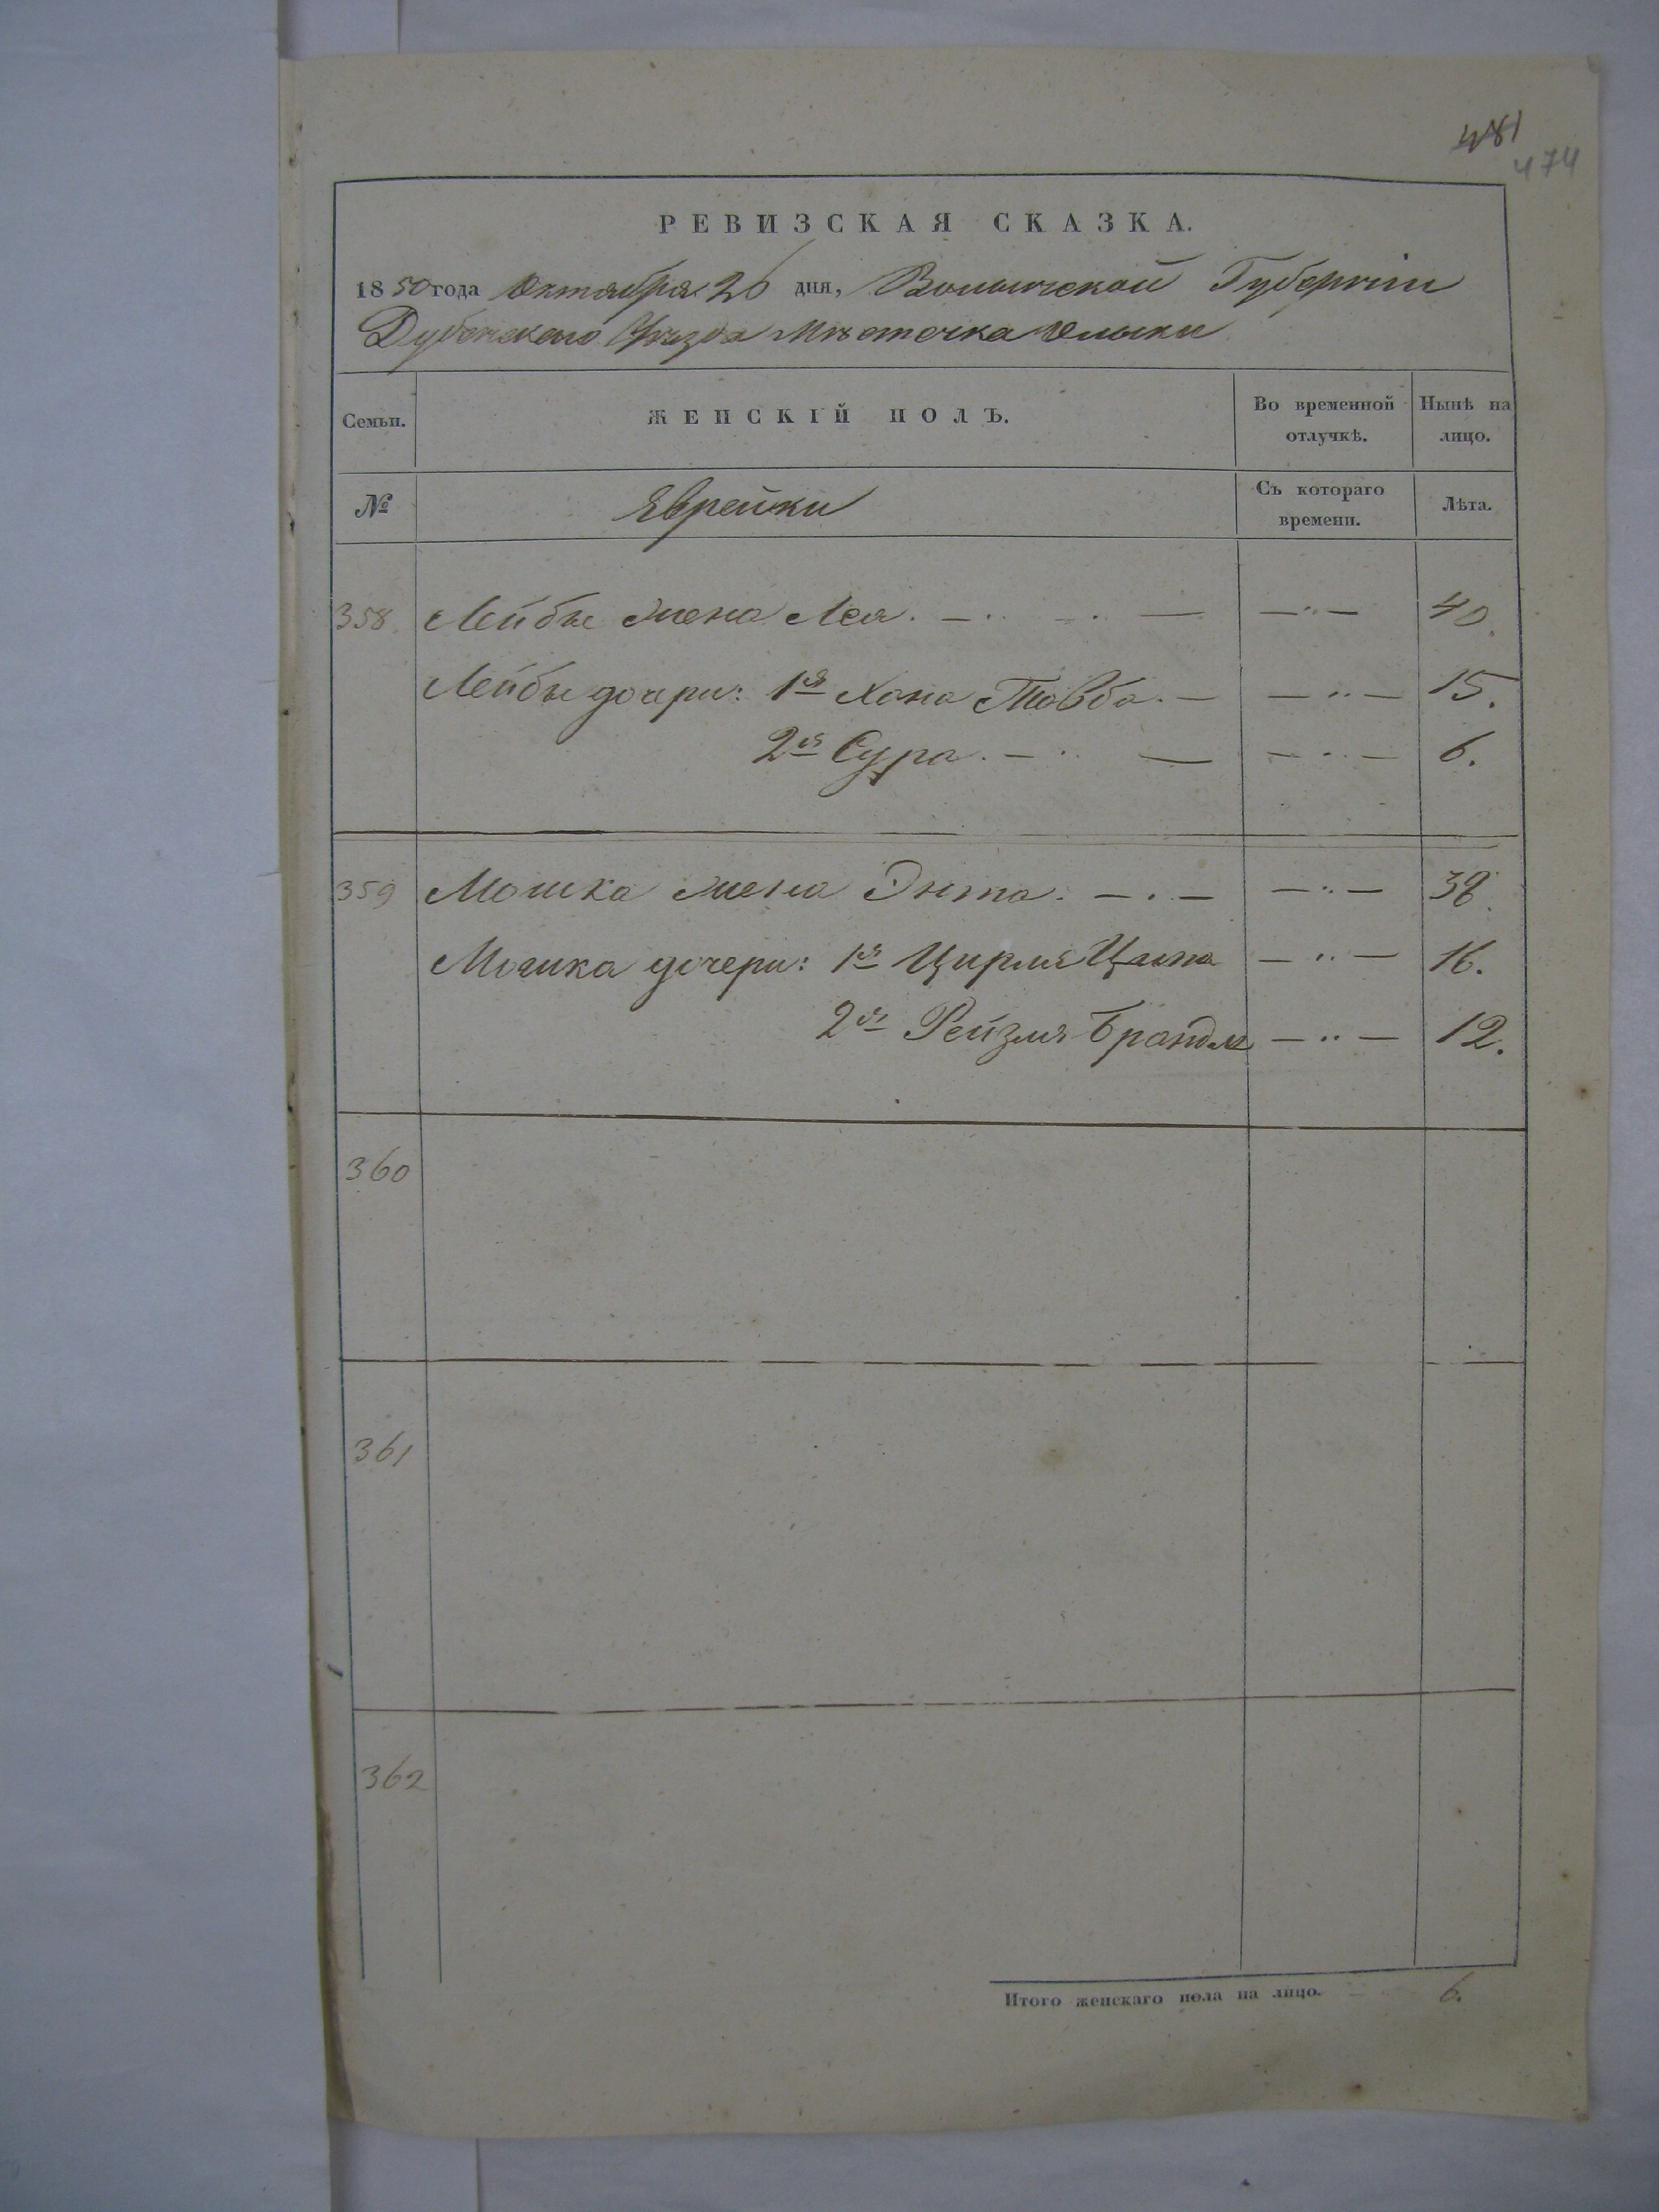 481
474
РЕВИЗСКАЯ СКАЗКА.
1850 года Октября 26 дня, Волынской Губерніи
Дубенскаго Уѣзда Мѣстечка Олыки
Семьи. ЖЕНСКІЙ ПОЛЪ. Во временной отлучкѣ. Нынѣ на лицо.
№ Еврейки Съ котораго времени. Лѣта.
358. Лейбы жена Лея. — — — 40.
Лейбы дочери: 1я Хана Товба. — — — 15.
2я Сура. — — — — 6.
359 Мошка жена Энта. — — — — 38.
Мошка дочери: 1я Цирля Цыпа — — 16.
2я Рейзля Брандля — — 12.
360
361
362
Итого женскаго пола на лицо. 6.